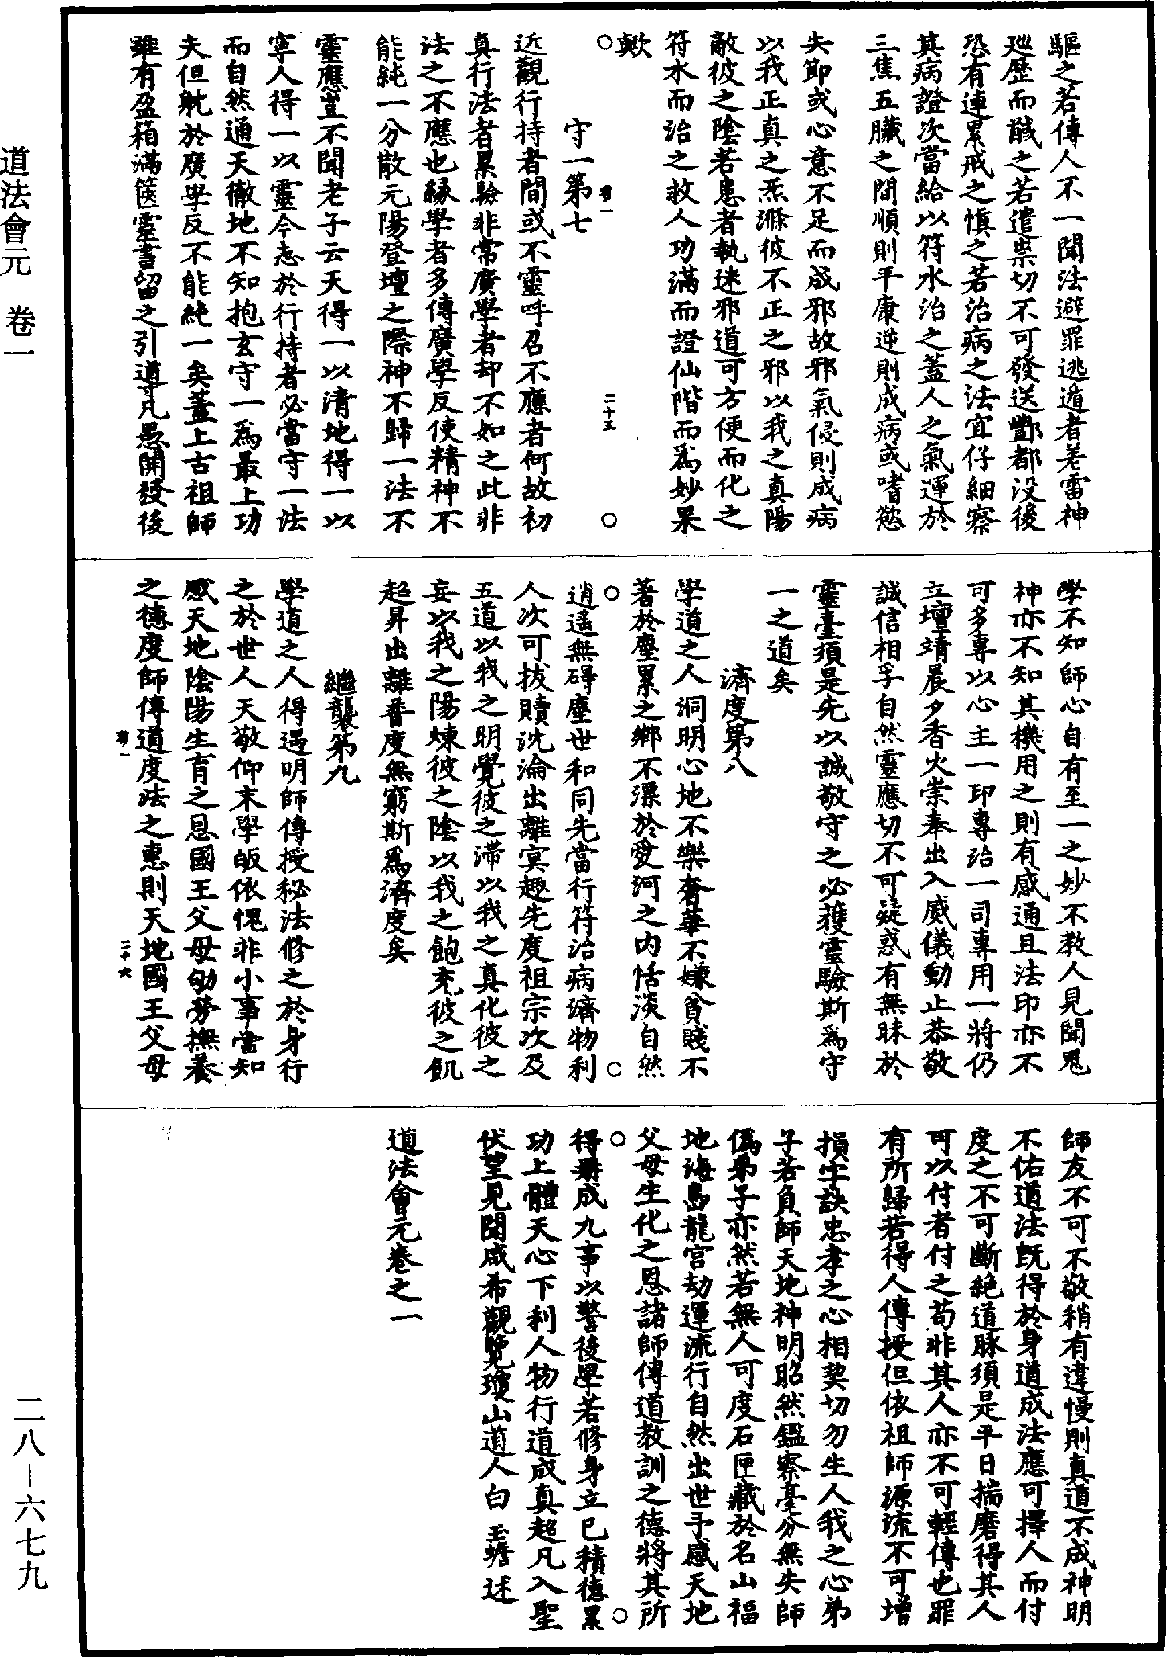 道法會元 卷一
驅之若傳人不一聞法避罪逃遁者差雷神
巡歷而馘之若遣祟切不可發送酆都没後
恐有連累戒之慎之若治病之法宜仔細察
其病證次當給以符水治之蓋人之氣運於
三焦五臟之間順則平康逆則成病或嗜慾
失節或心意不足而成邪故邪氣侵則成病
以我正真之炁滌彼不正之邪以我之真陽
敵彼之陰若患者執迷邪道可方便而化之
符水而治之救人功滿而證仙階而爲妙果
歟
守一第七
近觀行持者間或不靈呼召不應者何故初
真行法者累驗非常廣學者却不如之此非
法之不應也緣學者多傳廣學反使精神不
能純一分散元陽登壇之際神不歸一法不
靈應豈不聞老子云天得一以清地得一以
寧人得一以靈今志於行持者必當守一法
而自然通天徹地不知抱玄守一爲最上功
夫但躭於廣學反不能純一矣蓋上古祖師
雖有盈箱滿篋靈書留之引導凡愚開發後
二十五
學不知師心自有至一之妙不教人見聞鬼
神亦不知其機用之則有感通且法印亦不
可多專以心主一印專治一司專用一將仍
立壇靖晨夕香火崇奉出入威儀動止恭敬
誠信相孚自然靈應切不可疑惑有無昧於
靈臺須是先以誠敬守之必獲靈驗斯爲守
一之道矣
濟度第八
學道之人洞明心地不樂奢華不嫌貧賤不
著於塵累之鄉不漂於愛河之内恬淡自然
逍遥無碍塵世和同先當行符治病濟物利
人次可拔贖沈淪出離冥趣先度祖宗次及
五道以我之明覺彼之滯以我之真化彼之
妄以我之陽煉彼之陰以我之飽充彼之飢
超昇出離普度無窮斯爲濟度矣
繼襲第九
學道之人得遇明師傳授秘法修之於身行
之於世人天敬仰末學皈依愧非小事當知
感天地陰陽生育之恩國王父母劬勞撫養
之德度師傳道度法之惠則天地國王父母
二十六
師友不可不敬稍有違慢則真道不成神明
不佑道法既得於身道成法應可擇人而付
度之不可斷絶道脉須是平日揣磨得其人
可以付者付之苟非其人亦不可輕傳也罪
有所歸若得人傳授但依祖師源流不可增
損字訣忠孝之心相契切勿生人我之心弟
子若負師天地神明昭然鑑察毫分無失師
僞弟子亦然若無人可度石匣藏於名山福
地海島龍宫劫運流行自然出世予感天地
父母生化之恩諸師傳道教訓之德將其所
得册成九事以警後學若修身立己積德累
功上體天心下利人物行道成真超凡入聖
伏望見聞咸希觀覽瓊山道人白 玉蟾述
道法會元卷之一
二八—六七九